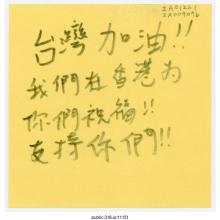 IA01221
台灣加油!!
我們在香港為
你們祝福!!
支持你們!!
public.316.ia11151